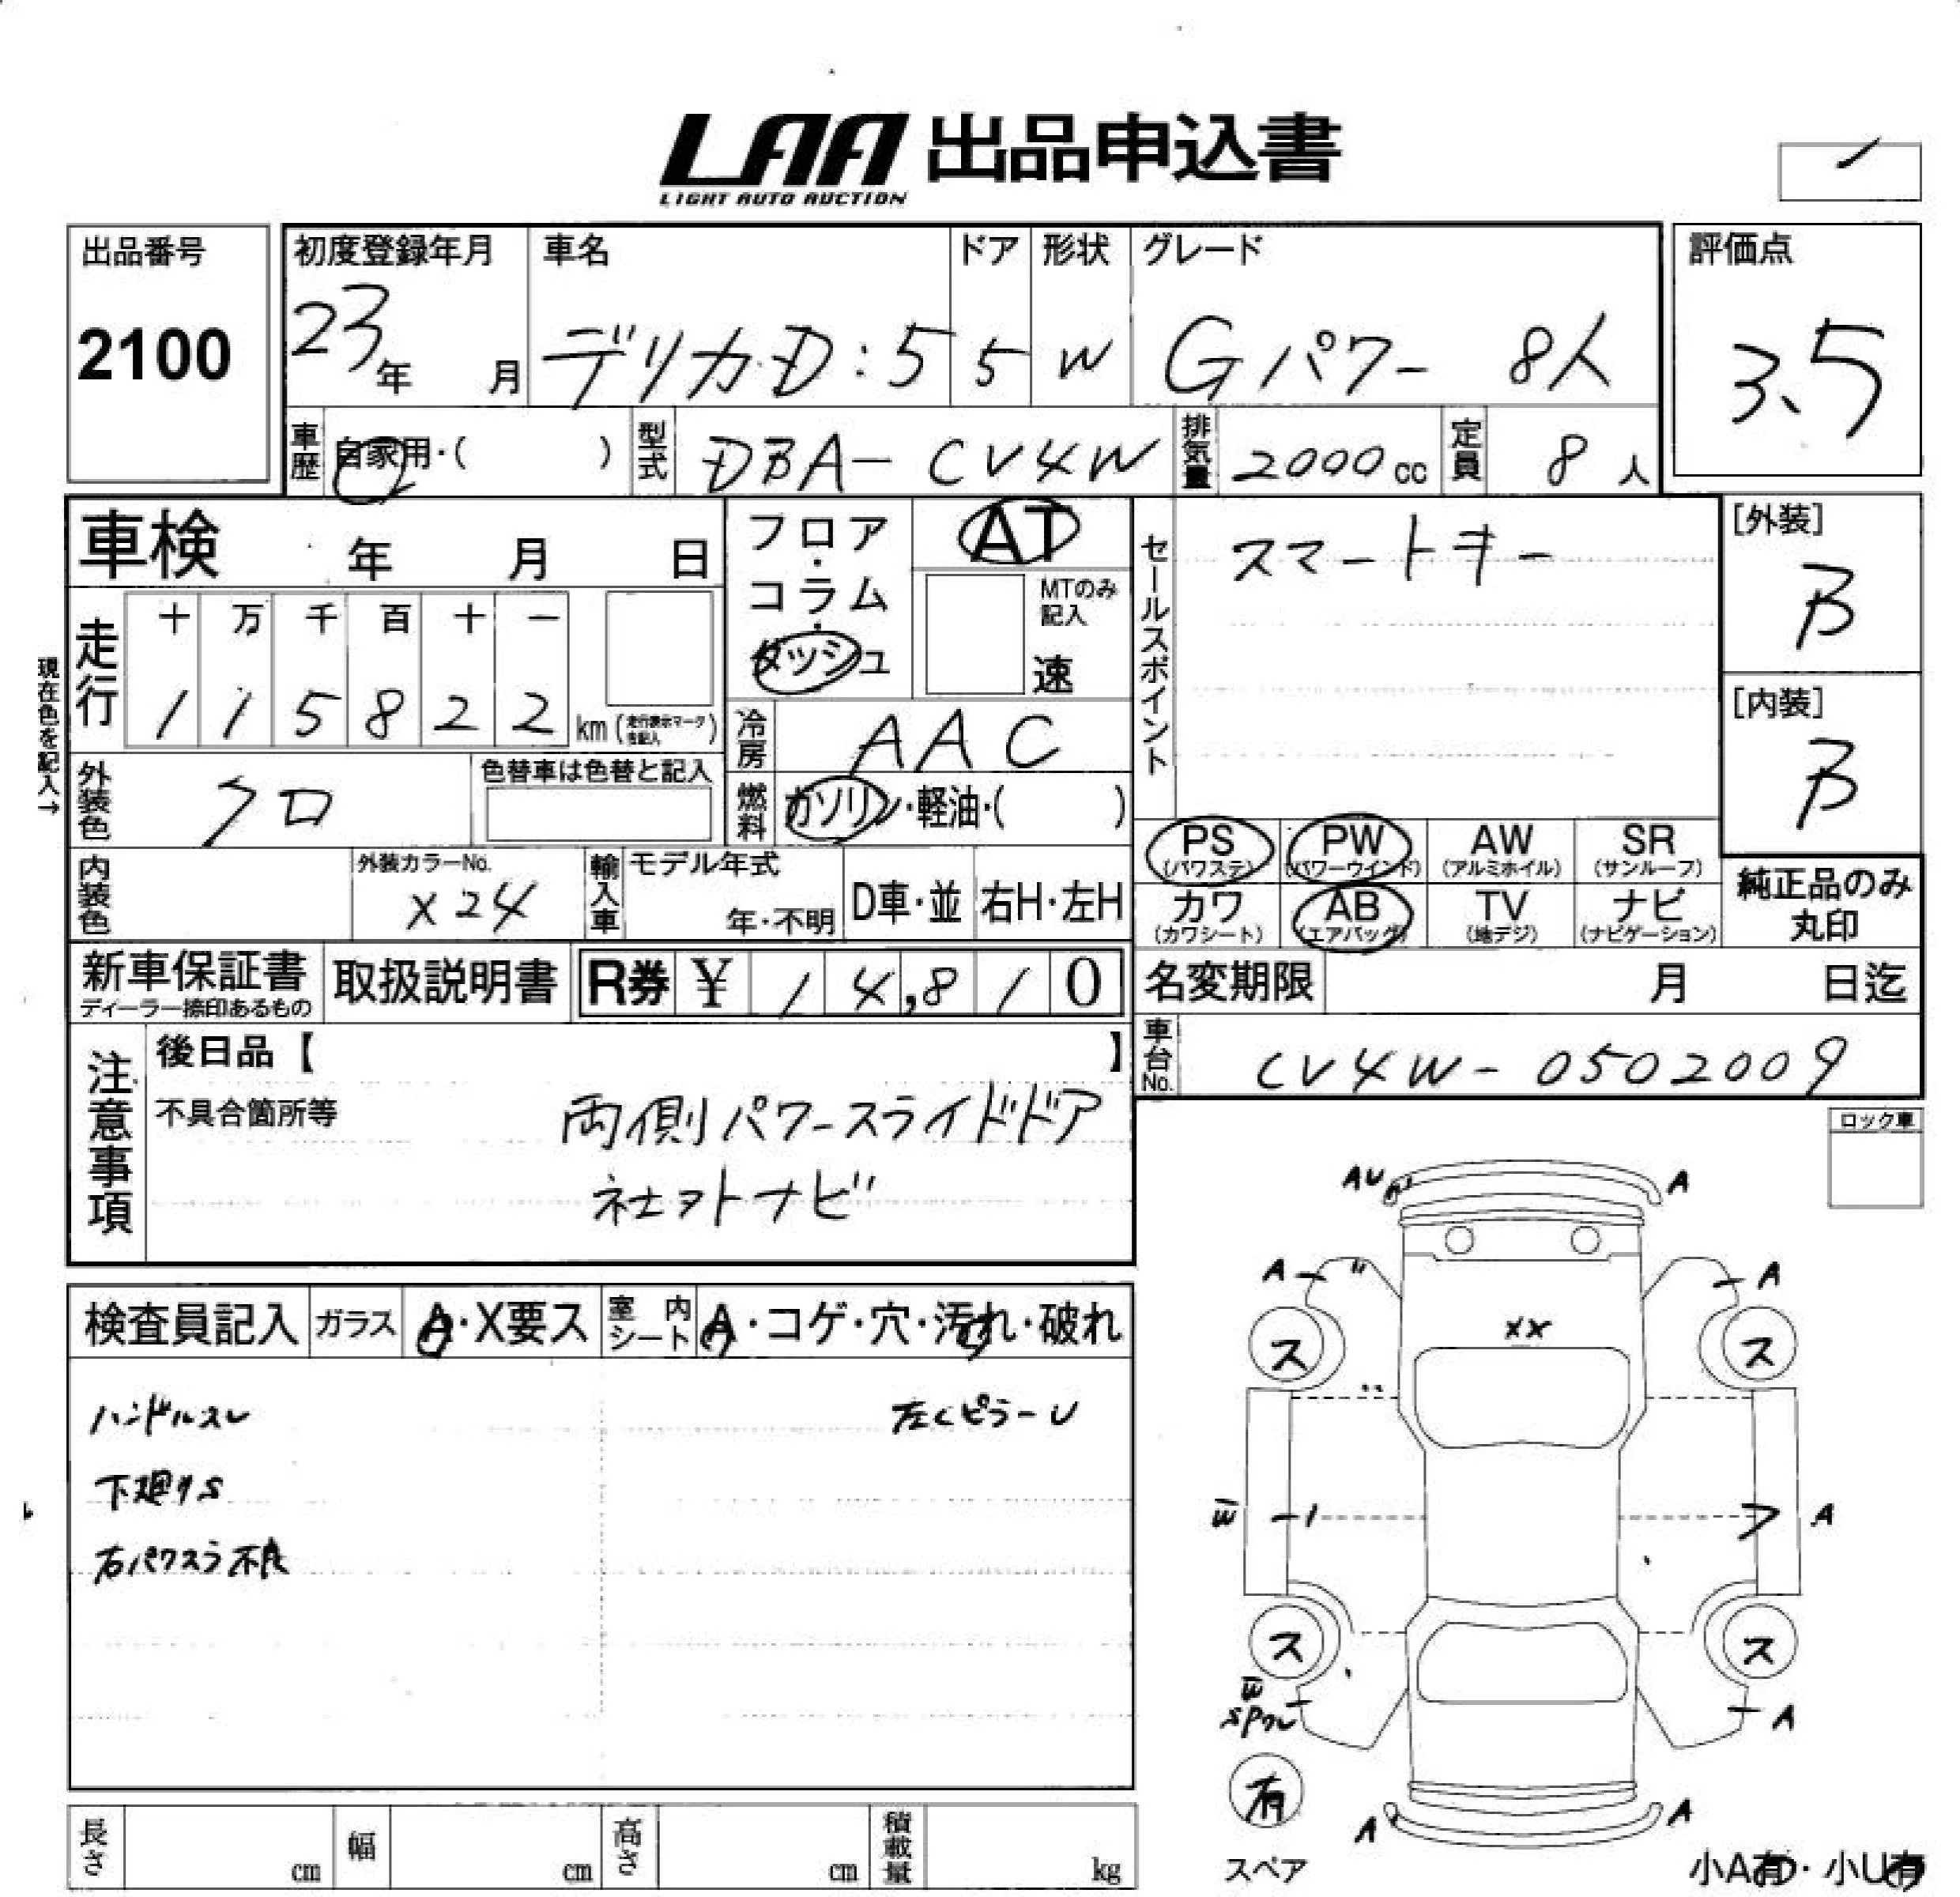 LAA 出品申込書
LIGHT AUTO AUCTION
出品番号
2100
初度登録年月
23年 月
車名
デリカD:5
ドア
5
形状
W
グレード
Gパワー 8人
評価点
3.5
車歴 自家用・( )
型式 DBA-CV4W
排気量 2000cc
定員 8人
車検 年 月 日
フロア・コラム・ダッシュ
AT
MTのみ記入
速
セールスポイント
スマートキー
[外装]
B
[内装]
B
現在色を記入→
走行
十 万 千 百 十 一
1 1 5 8 2 2 km(走行表示マーク を記入)
冷房 AAC
外装色 クロ
色替車は色替と記入
燃料 ガソリン・軽油・( )
内装色
外装カラーNo.
X24
輸入車 モデル年式
年・不明
D車・並 右H・左H
PS (パワステ) PW (パワーウインド) AW (アルミホイル) SR (サンルーフ)
カワ (カワシート) AB (エアバッグ) TV (地デジ) ナビ (ナビゲーション)
純正品のみ
丸印
新車保証書
ディーラー捺印あるもの
取扱説明書
R券 ¥ 1 4,8 1 0
名変期限 月 日迄
車台No. CV4W-0502009
注意事項
後日品【 】
不具合箇所等
両側パワースライドドア
社ヲトナビ
ロック車
検査員記入 ガラス A・X要ス 室内シート A・コゲ・穴・汚れ・破れ
ハンドルスレ
左CピラーU
下廻りS
右パワスラ不良
AU A
A A
XX
ス ス
W A
ス ス
W
A
有
スペア
A A
小A有・小U有
長さ cm 幅 cm 高さ cm 積載量 kg